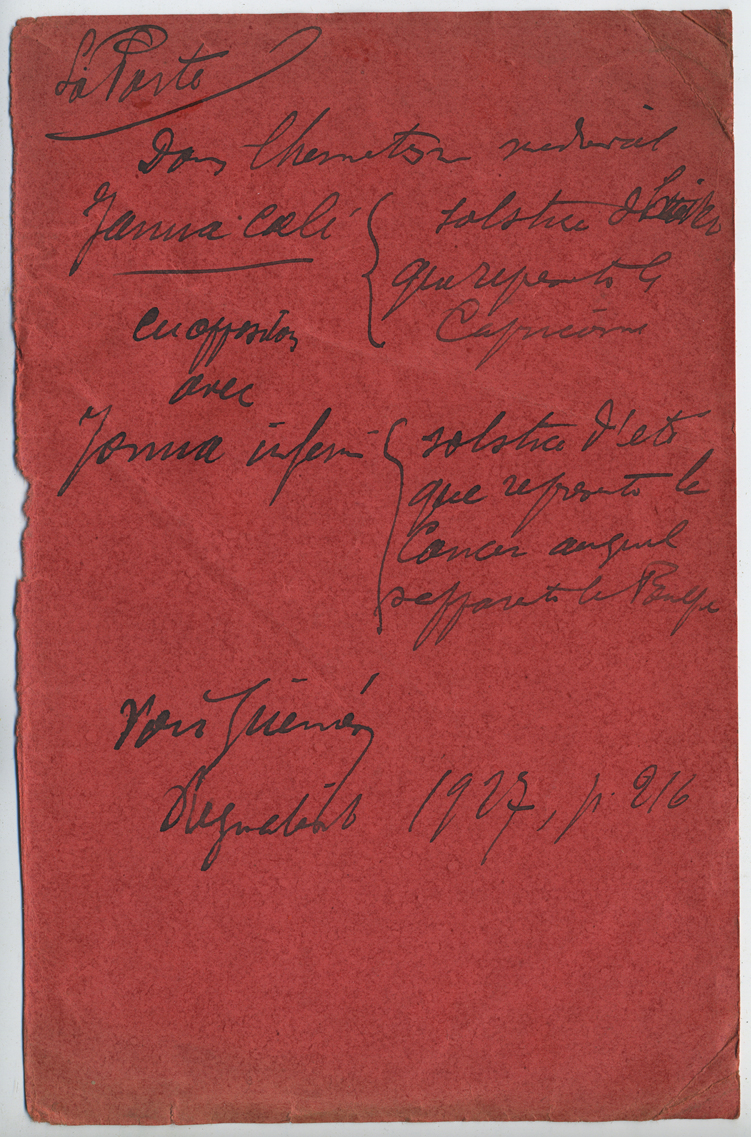 La Porte
Dans l'hermetism medieval
Janua Cœli solstice d'hiver
que represente le
Capricorne
en opposition
avec
Janua inferni solstice d'eté
que represente le
Cancer auquel
rapporte le
Voir Guénon
Regnabit 1927, p. 216